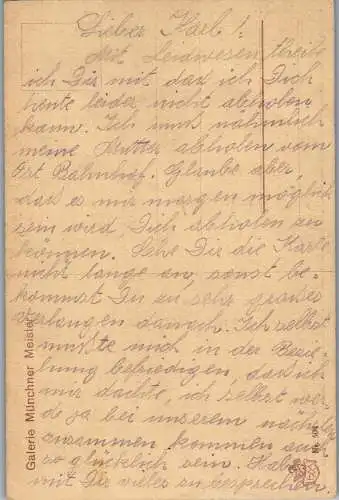 Lieber Karl!
Mit Leidwesen theile
ich Dir mit das ich Dich
heute leider nicht abholen
kann. Ich muß nähmlich
meine Mutter abholen vom
Ost Bahnhof. Glaube aber,
daß es mir morgen möglich
sein wird, Dich abholen zu
können. Sehe Dir die Karte
nicht lange an, sonst be-
kommst Du zu sehr großes
Verlangen danach. Ich selbst
mußte mich in der Bezie-
hung befriedigen, das ich
mir dachte, ich selbst wer-
de ja bei unserem nächsten
zusammen kommen auch
so glücklich sein. Habe
mit Dir vieles zu besprechen
Galerie Münchner Meister
Nr.